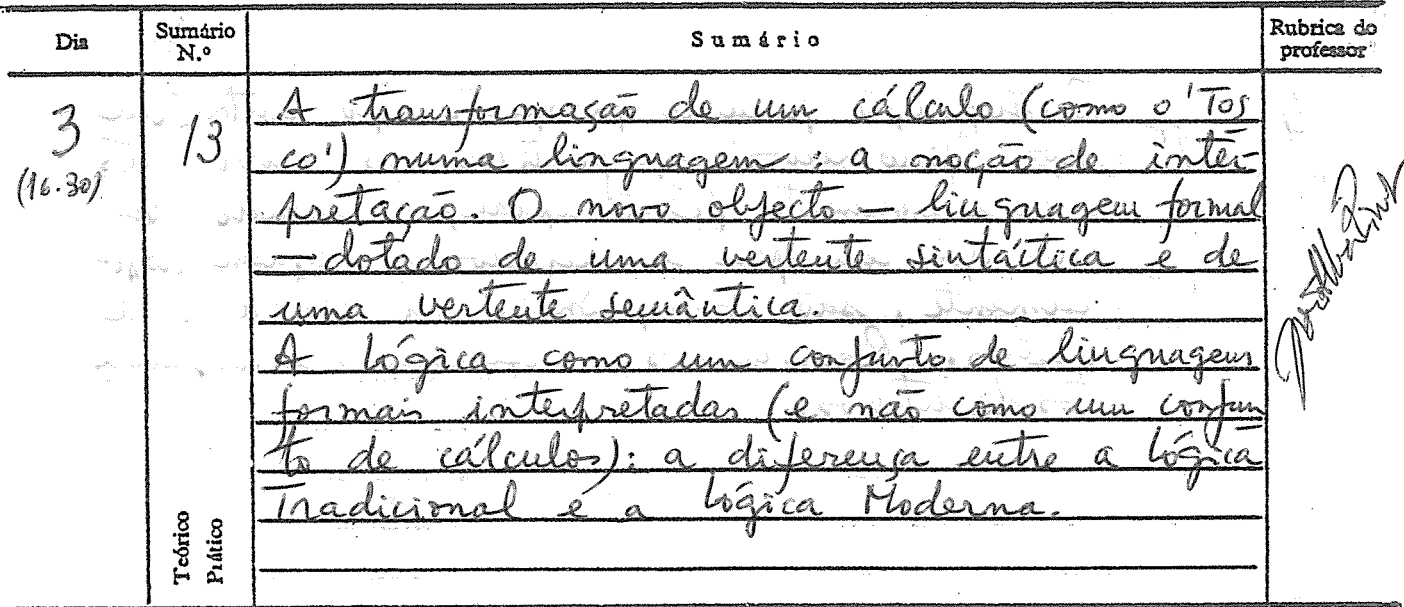 Dia Sumário N.º Sumário Rubrica do professor
3 13 A transformação de um cálculo (como o 'Tos
(16.30) co') numa linguagem: a noção de inter-
pretação. O novo objecto — linguagem formal
— dotado de uma vertente sintáctica e de
uma vertente semântica.
A Lógica como um conjunto de linguagens
formais interpretadas (e não como um conjun
to de cálculos): a diferença entre a Lógica
Tradicional e a Lógica Moderna.
Teórico
Prático